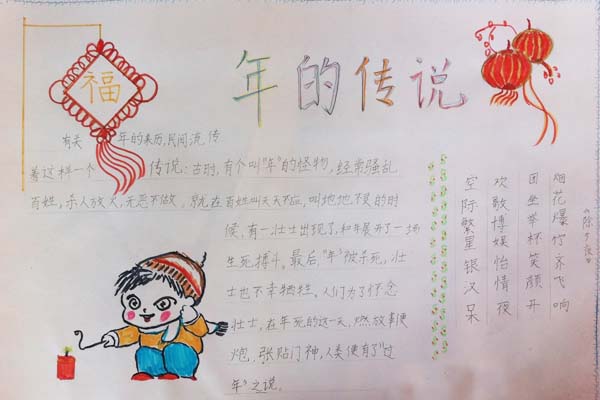 福
年的传说
有关 年的来历,民间流传
着这样一个 传说:古时,有个叫"年"的怪物,经常骚乱
百姓,杀人放火,无恶不做,就在百姓叫天天不应,叫地地不灵的时
候,有一壮士出现了,和年展开了一场
生死搏斗。最后,"年"被杀死,壮
士也不幸牺牲。人们为了怀念
壮士,在年死的这一天,燃放鞭
炮,张贴门神,人类便有了"过
年"之说。
《除夕夜》
烟花爆竹齐飞响
团坐举杯笑颜开
欢歌博娱怡情夜
空际繁星银汉呆